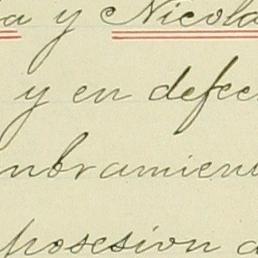 a y Nicola
y en defec
mbramien
posesion a